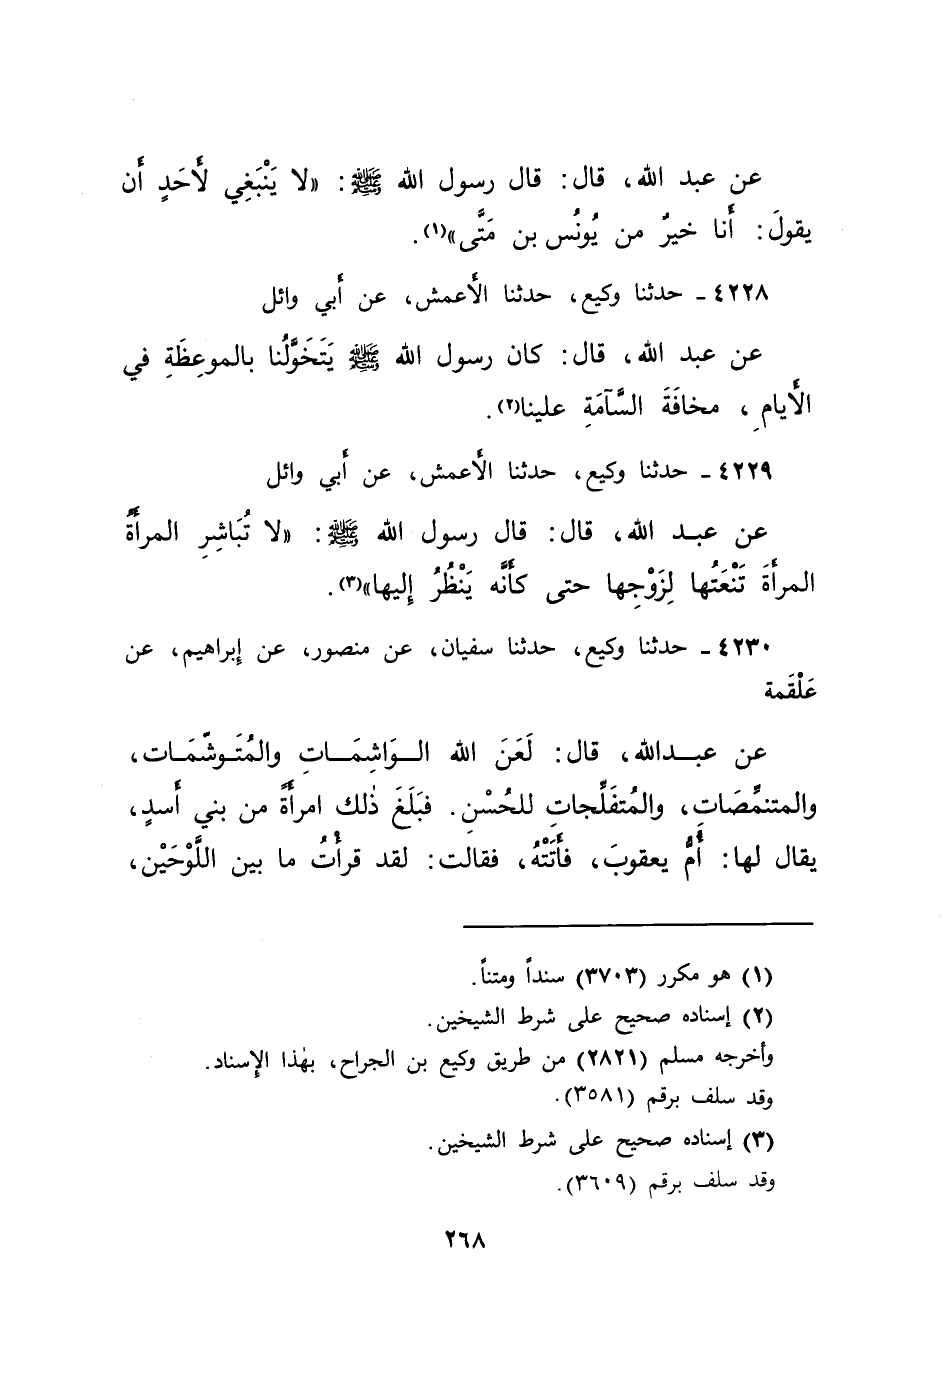 عن عبد الله، قال: قال رسول الله ﷺ: «لا يَنْبَغِي لأَحَدٍ أَن
يقولَ: أَنا خيرٌ من يُونُس بن مَتَّى»(١).
٤٢٢٨ ـ حدثنا وكيع، حدثنا الأَعمش، عن أَبي وائل
عن عبد الله، قال: كان رسول الله ﷺ يَتَخَوَّلُنا بالموعِظَةِ في
الأَيامِ، مخافَةَ السَّآمَةِ علينا(٢).
٤٢٢٩ ـ حدثنا وكيع، حدثنا الأَعمش، عن أَبي وائل
عن عبد الله، قال: قال رسول الله ﷺ: «لا تُبَاشِرِ المرأَةُ
المرأَةَ تَنْعَتُها لِزَوْجِها حتى كأَنَّه يَنْظُرُ إِليها»(٣).
٤٢٣٠ ـ حدثنا وكيع، حدثنا سفيان، عن منصور، عن إبراهيم، عن
عَلْقَمة
عن عبدالله، قال: لَعَنَ الله الوَاشِمَاتِ والمُتَوشّمَات،
والمتنمِّصَاتِ، والمُتفَلِّجاتِ للحُسْنِ. فبَلَغَ ذٰلك امرأَةً من بني أَسدٍ،
يقال لها: أُمُّ يعقوبَ، فأَتَتْهُ، فقالت: لقد قرأْتُ ما بين اللَّوْحَيْن،
(١) هو مكرر (٣٧٠٣) سنداً ومتناً.
(٢) إسناده صحيح على شرط الشيخين.
وأخرجه مسلم (٢٨٢١) من طريق وكيع بن الجراح، بهٰذا الإِسناد.
وقد سلف برقم (٣٥٨١).
(٣) إسناده صحيح على شرط الشيخين.
وقد سلف برقم (٣٦٠٩).
٢٦٨